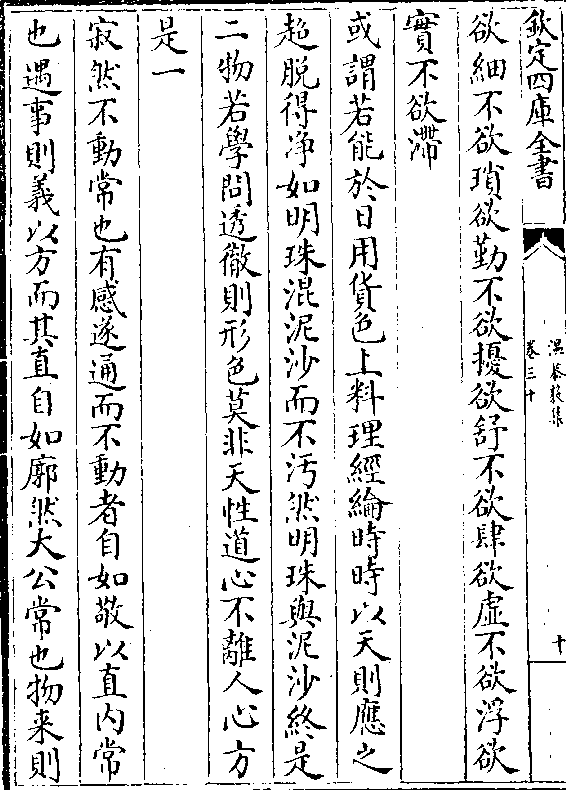 欽定四庫全書
溫恭毅集
卷三十
十
欲細不欲瑣欲勤不欲擾欲舒不欲肆欲虛不欲浮欲
實不欲滯
或謂若能於日用貨色上料理經綸時時以天則應之
超脫得净如明珠混泥沙而不汚然明珠與泥沙終是
二物若學問透徹則形色莫非天性道心不離人心方
是一
寂然不動常也有感遂通而不動者自如敬以直内常
也遇事則義以方而其直自如廓然大公常也物来則